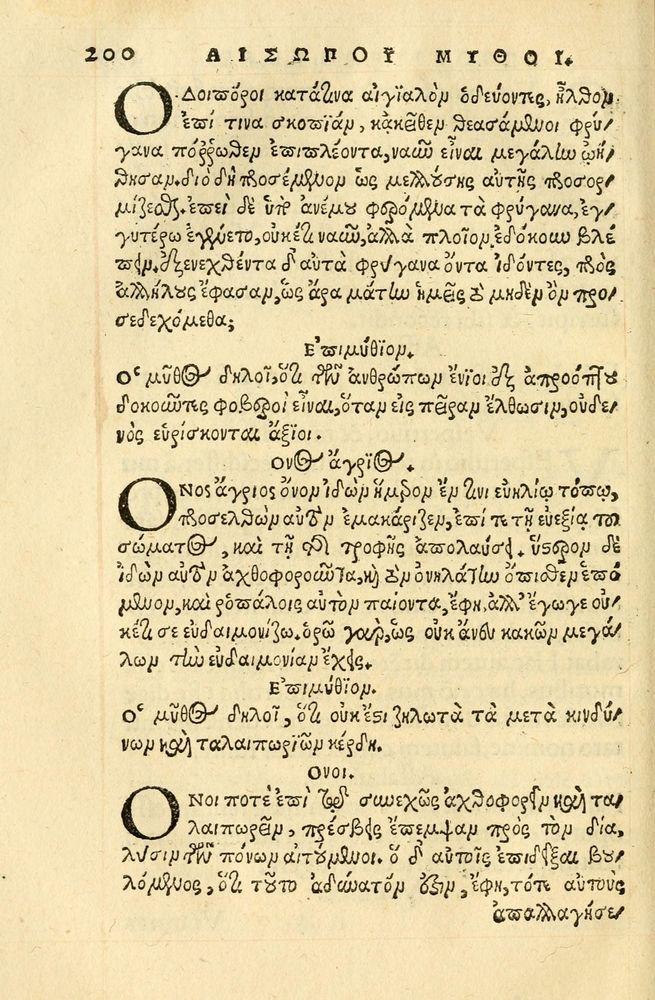 200 ΑΙΣΩΠΟΥ ΜΥΘΟΙ.
Ὁδοιπόροι κατά τινα αἰγιαλὸν ὁδεύοντες, ἦλθον
ἐπί τινα σκοπιάν, κἀκεῖθεν θεασάμενοι φρύ/
γανα πόῤῥωθεν ἐπιπλέοντα, ναῦν εἶναι μεγάλην ᾠή/
θησαν. διὸ δὴ προσέμενον ὡς μελλούσης αὐτῆς προσορ/
μίζεσθαι. ἐπεὶ δὲ ὑπὸ ἀνέμου φερόμενα τὰ φρύγανα, ἐγ/
γυτέρω ἐγένετο, οὐκέτι ναῦν, ἀλλὰ πλοῖον ἐδόκουν βλέ
πειν. ἐξενεχθέντα δ' αὐτὰ φρύγανα ὄντα ἰδόντες, πρὸς
ἀλλήλους ἔφασαν, ὡς ἄρα μάτην ἡμεῖς τὸ μηδὲν ὂν προ/
σεδεχόμεθα;
Ἐπιμύθιον.
Ὁ μῦθος δηλοῖ, ὅτι τῶν ἀνθρώπων ἔνιοι ἐξ ἀπροόπτου
δοκοῦντες φοβεροὶ εἶναι, ὅταν εἰς πεῖραν ἔλθωσιν, οὐδε/
νὸς εὑρίσκονται ἄξιοι.
Ὄνος ἄγριος.
Ὄνος ἄγριος ὄνον ἰδὼν ἥμερον ἔν τινι εὐηλίῳ τόπῳ,
προσελθὼν αὐτὸν ἐμακάριζεν, ἐπί τε τῇ εὐεξίᾳ τοῦ
σώματος, καὶ τῇ τῆς τροφῆς ἀπολαύσει. ὕστερον δὲ
ἰδὼν αὐτὸν ἀχθοφοροῦντα, καὶ τὸν ὀνηλάτην ὄπισθεν ἑπό
μενον, καὶ ῥοπάλοις αὐτὸν παίοντα, ἔφη, ἀλλ' ἔγωγε οὐ/
κέτι σε εὐδαιμονίζω. ὁρῶ γὰρ, ὡς οὐκ ἄνευ κακῶν μεγά/
λων τὴν εὐδαιμονίαν ἔχεις.
Ἐπιμύθιον.
Ὁ μῦθος δηλοῖ, ὅτι οὐκ ἔστι ζηλωτὰ τὰ μετὰ κινδύ/
νων καὶ ταλαιπωριῶν κέρδη.
Ὄνοι.
Ὄνοι ποτὲ ἐπὶ τῷ συνεχῶς ἀχθοφορεῖν καὶ τα/
λαιπωρεῖν, πρέσβεις ἔπεμψαν πρὸς τὸν δία,
λύσιν τῶν πόνων αἰτούμενοι. ὁ δ' αὐτοῖς ἐπιδεῖξαι βου/
λόμενος, ὅτι τοῦτο ἀδύνατόν ἐστιν, ἔφη, τότε αὐτοὺς
ἀπαλλαγήσε/